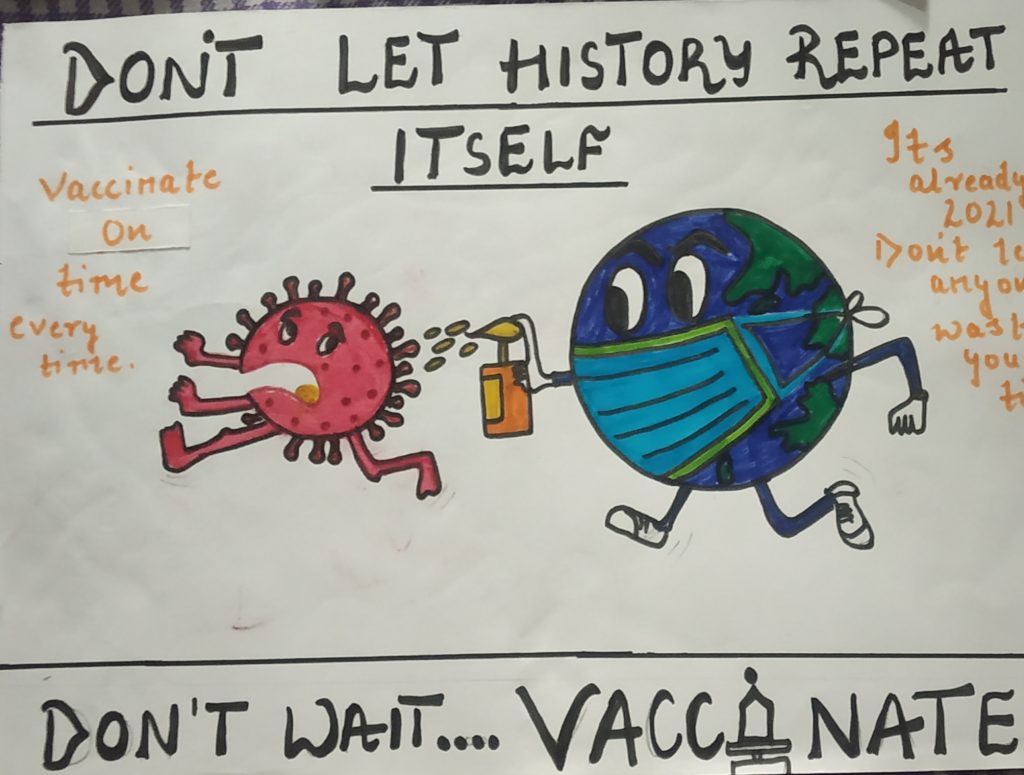 DON'T LET HISTORY REPEAT
ITSELF
Vaccinate
On
time
every
time.
Its
already
2021
Don't
DON'T WAIT.... VACCINATE